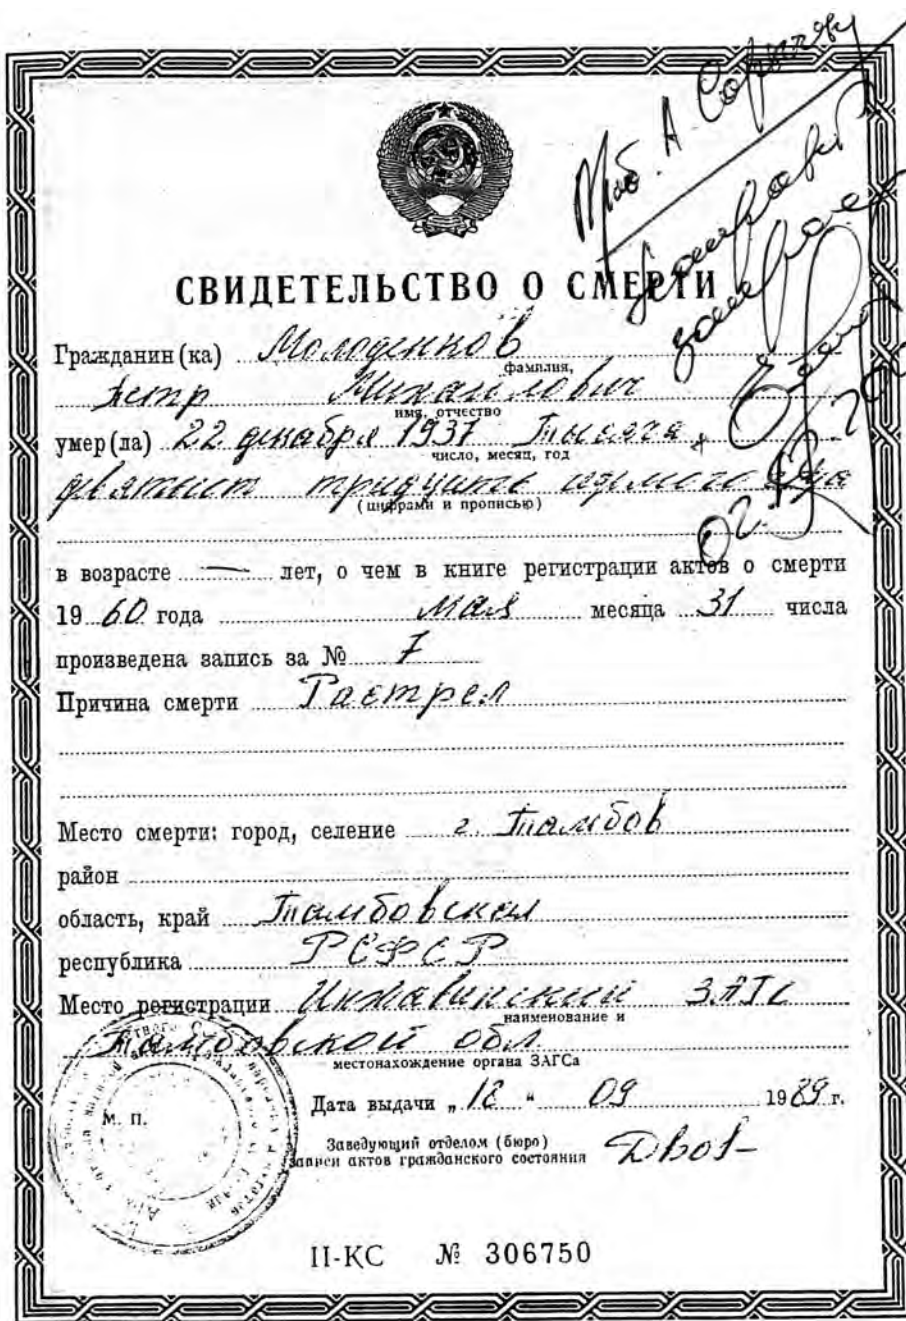 СВИДЕТЕЛЬСТВО О СМЕРТИ
Гражданин(ка) Молоденков
фамилия,
Петр Михайлович
имя, отчество
умер(ла) 22 декабря 1937 Тысяча
число, месяц, год
девятьсот тридцать седьмого года
(цифрами и прописью)
в возрасте — лет, о чем в книге регистрации актов о смерти
1960 года мая месяца 31 числа
произведена запись за № 7
Причина смерти Растрел
Место смерти: город, селение г. Тамбов
район
область, край Тамбовская
республика РСФСР
Место регистрации Инжавинский ЗАГС
наименование и
Тамбовской обл.
местонахождение органа ЗАГСа
Дата выдачи „18“ 09 1989 г.
М. П.
Заведующий отделом (бюро)
записи актов гражданского состояния
II-КС № 306750